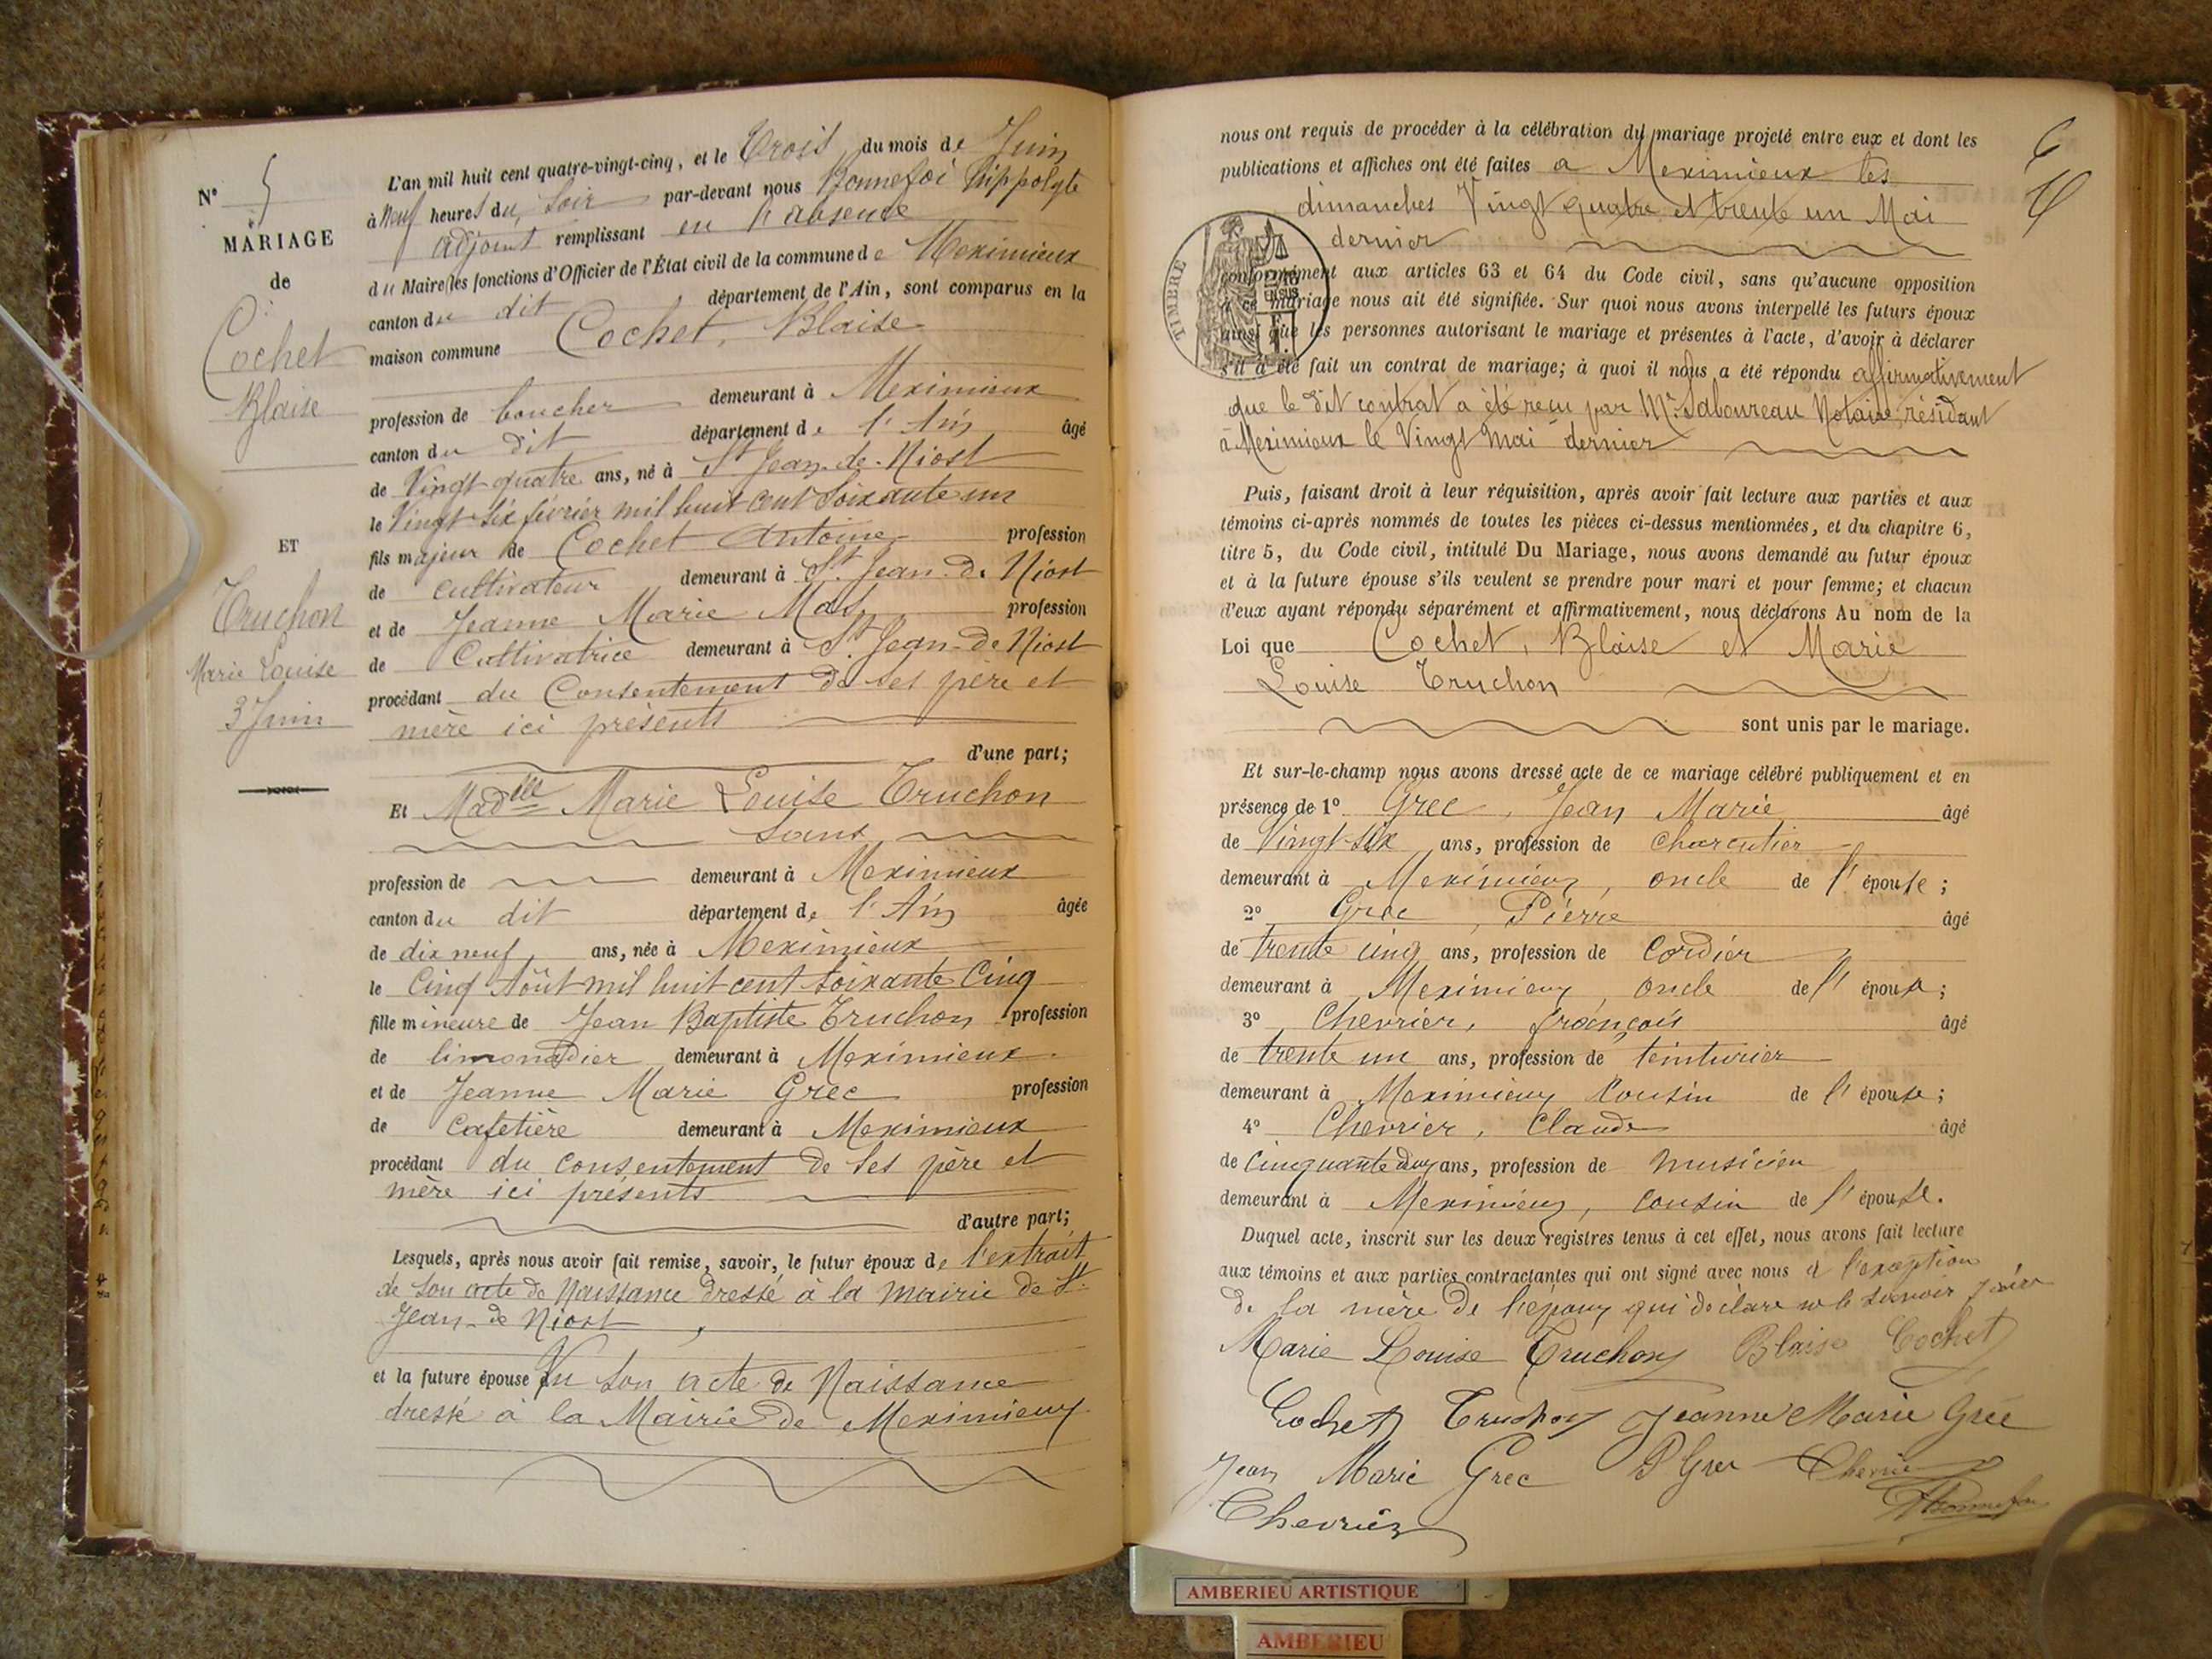 N° 5
MARIAGE
de
Cochet
Blaise
ET
Truchon
Marie Louise
3 Juin
L'an mil huit cent quatre-vingt-cinq, et le Trois du mois de Juin
à Neuf heures du soir par-devant nous Bonnefoi Hippolyte
adjoint remplissant en l'absence
du Maire les fonctions d'Officier de l'État civil de la commune de Meximieux
canton du dit département de l'Ain, sont comparus en la
maison commune Cochet, Blaise
profession de boucher demeurant à Meximieux
canton du dit département de l'Ain âgé
de Vingt quatre ans, né à St Jean-de-Niost
le Vingt six février mil huit cent soixante un
fils majeur de Cochet Antoine profession
de cultivateur demeurant à St. Jean-de Niost
et de Jeanne Marie Mas, profession
de Cultivatrice demeurant à St. Jean-de Niost
procédant du Consentement de ses père et
mère ici présents
d'une part;
Et Madlle Marie Louise Truchon
sans
profession de demeurant à Meximieux
canton du dit département de l'Ain âgée
de dix neuf ans, née à Meximieux
le Cinq Août mil huit cent soixante Cinq
fille mineure de Jean Baptiste Truchon profession
de limonadier demeurant à Meximieux
et de Jeanne Marie Grec profession
de Cafetière demeurant à Meximieux
procédant du consentement de ses père et
mère ici présents
d'autre part;
Lesquels, après nous avoir fait remise, savoir, le futur époux de l'extrait
de son acte de Naissance dressé à la mairie de St
Jean-de Niost,
et la future épouse Vu son acte de Naissance
dressé à la Mairie de Meximieux
nous ont requis de procéder à la célébration du mariage projeté entre eux et dont les
publications et affiches ont été faites a Meximieux les
dimanches Vingt quatre et trente un Mai
dernier
TIMBRE
conformément aux articles 63 et 64 du Code civil, sans qu'aucune opposition
à ce mariage nous ait été signifiée. Sur quoi nous avons interpellé les futurs époux
ainsi que les personnes autorisant le mariage et présentes à l'acte, d'avoir à déclarer
s'il a été fait un contrat de mariage; à quoi il nous a été répondu affirmativement
que le dit contrat a été reçu par Me Saboureau Notaire résidant
à Meximieux le Vingt Mai dernier
Puis, faisant droit à leur réquisition, après avoir fait lecture aux parties et aux
témoins ci-après nommés de toutes les pièces ci-dessus mentionnées, et du chapitre 6,
titre 5, du Code civil, intitulé Du Mariage, nous avons demandé au futur époux
et à la future épouse s'ils veulent se prendre pour mari et pour femme; et chacun
d'eux ayant répondu séparément et affirmativement, nous déclarons Au nom de la
Loi que Cochet, Blaise et Marie
Louise Truchon
sont unis par le mariage.
Et sur-le-champ nous avons dressé acte de ce mariage célébré publiquement et en
présence de 1° Grec, Jean Marie âgé
de Vingt-six ans, profession de charcutier
demeurant à Meximieux, oncle de l'épouse;
2° Grec, Pierre âgé
de trente cinq ans, profession de Cordier
demeurant à Meximieux, oncle de l'épouse;
3° Chevrier, françois âgé
de trente un ans, profession de teinturier
demeurant à Meximieux Cousin de l'épouse;
4° Chevrier, Claude âgé
de Cinquante deux ans, profession de musicien
demeurant à Meximieux, cousin de l'épouse.
Duquel acte, inscrit sur les deux registres tenus à cet effet, nous avons fait lecture
aux témoins et aux parties contractantes qui ont signé avec nous à l'exception
de la mère de l'époux qui déclare ne le savoir faire
Marie Louise Truchon Blaise Cochet
Cochet Truchon Jeanne Marie Grec
Jean Marie Grec P Grec Chevrier
Chevrier HBonnefoi
AMBERIEU ARTISTIQUE
AMBERIEU